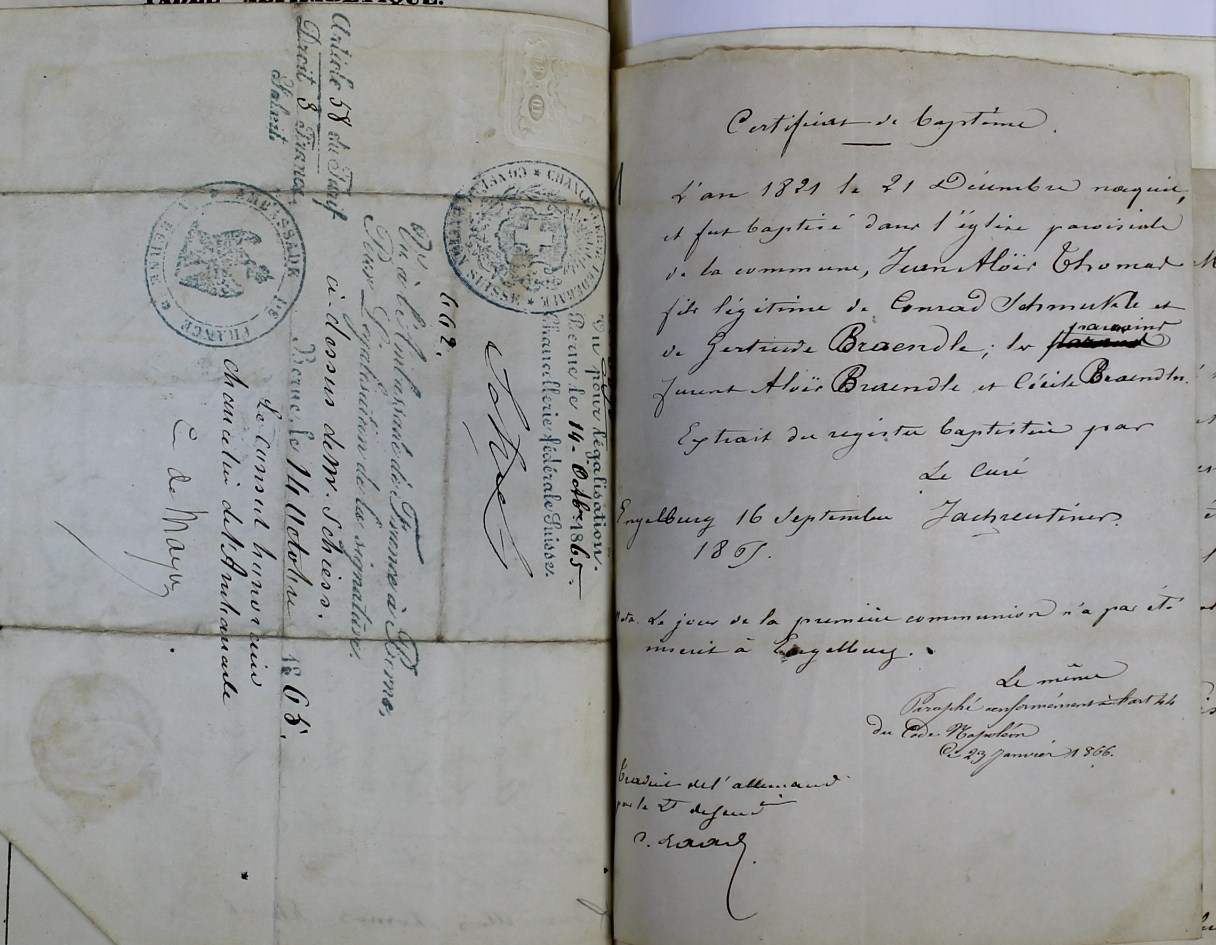 TABLE ALPHABÉTIQUE.
Article 58 du Tarif
Droit 3 Francs
Vu pour légalisation.
Berne, le 14 Octbre 1865.
Chancellerie fédérale Suisse.
CHANCELLERIE FÉDÉRALE SUISSE
662.
Vu à l'Ambassade de France à Berne,
Pour Légalisation de la signature
ci dessus de Mr. Schiess.
Berne, le 14 Octobre 1865.
Le Consul honoraire
Chancelier de l'Ambassade
AMBASSADE DE FRANCE
A BERNE
Certificat de baptême.
L'an 1821 le 21 Décembre naquit,
et fut baptisé dans l'église paroissiale
de la commune, Jean Aloïs Thomas
fils légitime de Conrad Schmukle et
de Gertrude Braendle; les parrains
furent Aloïs Braendle et Cécile Braendle.
Extrait du registre baptistère par
Le Curé
Engelburg 16 Septembre
1865.
Nota. Le jour de la première communion n'a pas été
inscrit à Engelburg.
Le même
Paraphé conformément à l'art 44
du Code Napoléon
Ce 23 Janvier 1866.
Traduit de l'allemand